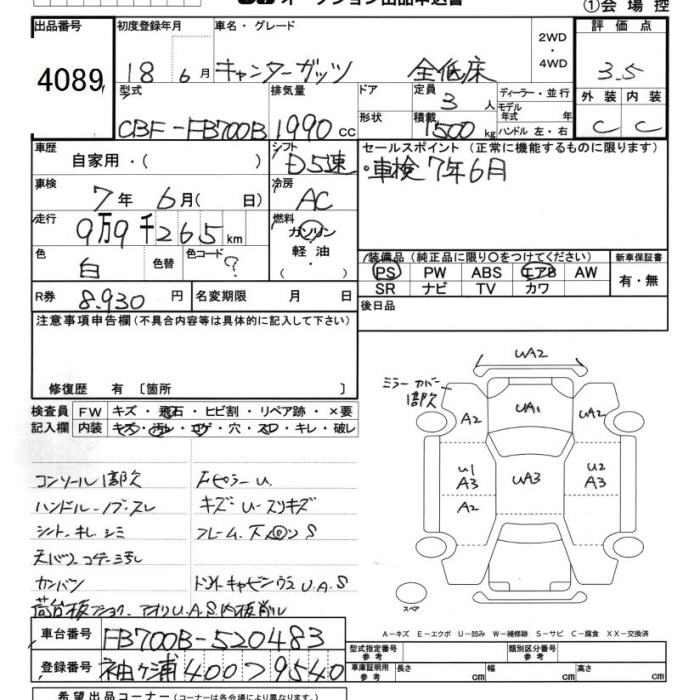 オークション出品申込書
①会場控
出品番号 4089
初度登録年月 18年 6月
車名・グレード キャンターガッツ 全低床
2WD・4WD
評価点 3.5
外装 C 内装 C
型式 CBF-FB700B
排気量 1990 cc
ドア
形状
定員 3人
積載 1500 kg
ディーラー・並行
モデル年式 年
ハンドル 左・右
車歴 自家用・( )
シフト D5速
セールスポイント(正常に機能するものに限ります)
・車検7年6月
車検 7年 6月( 日)
冷房 AC
走行 9万9千265 km
燃料 ガソリン 軽油・( )
色 白 色替 色コード ?
R券 8.930円
名変期限 月 日
装備品(純正品に限り○をつけてください)
PS PW ABS エアB AW
SR ナビ TV カワ
新車保証書 有・無
後日品
注意事項申告欄(不具合内容等は具体的に記入して下さい)
修復歴 有〔箇所 〕
検査員記入欄
FW キズ・飛石・ヒビ割・リペア跡・×要
内装 キズ・汚レ・コゲ・穴・スレ・キレ・破レ
コンソール1部欠
ハンドル・ノブ・スレ
シート・キレ・シミ
カンバン
キズ・U・スリキズ
UA2
ミラーカバー1部欠
A2 UA1 UA2
U1 A3 UA3 U2 A3
A2
スペア
A-キズ E-エクボ U-凹み W-補修跡 S-サビ C-腐食 XX-交換済
車台番号 FB700B-520483
登録番号 袖ケ浦 400 つ 9540
型式指定番号 参考
類別区分番号 参考
車庫証明用 参考 長さ cm 幅 cm 高さ cm
希望出品コーナー(コーナーは各会場により異なります)